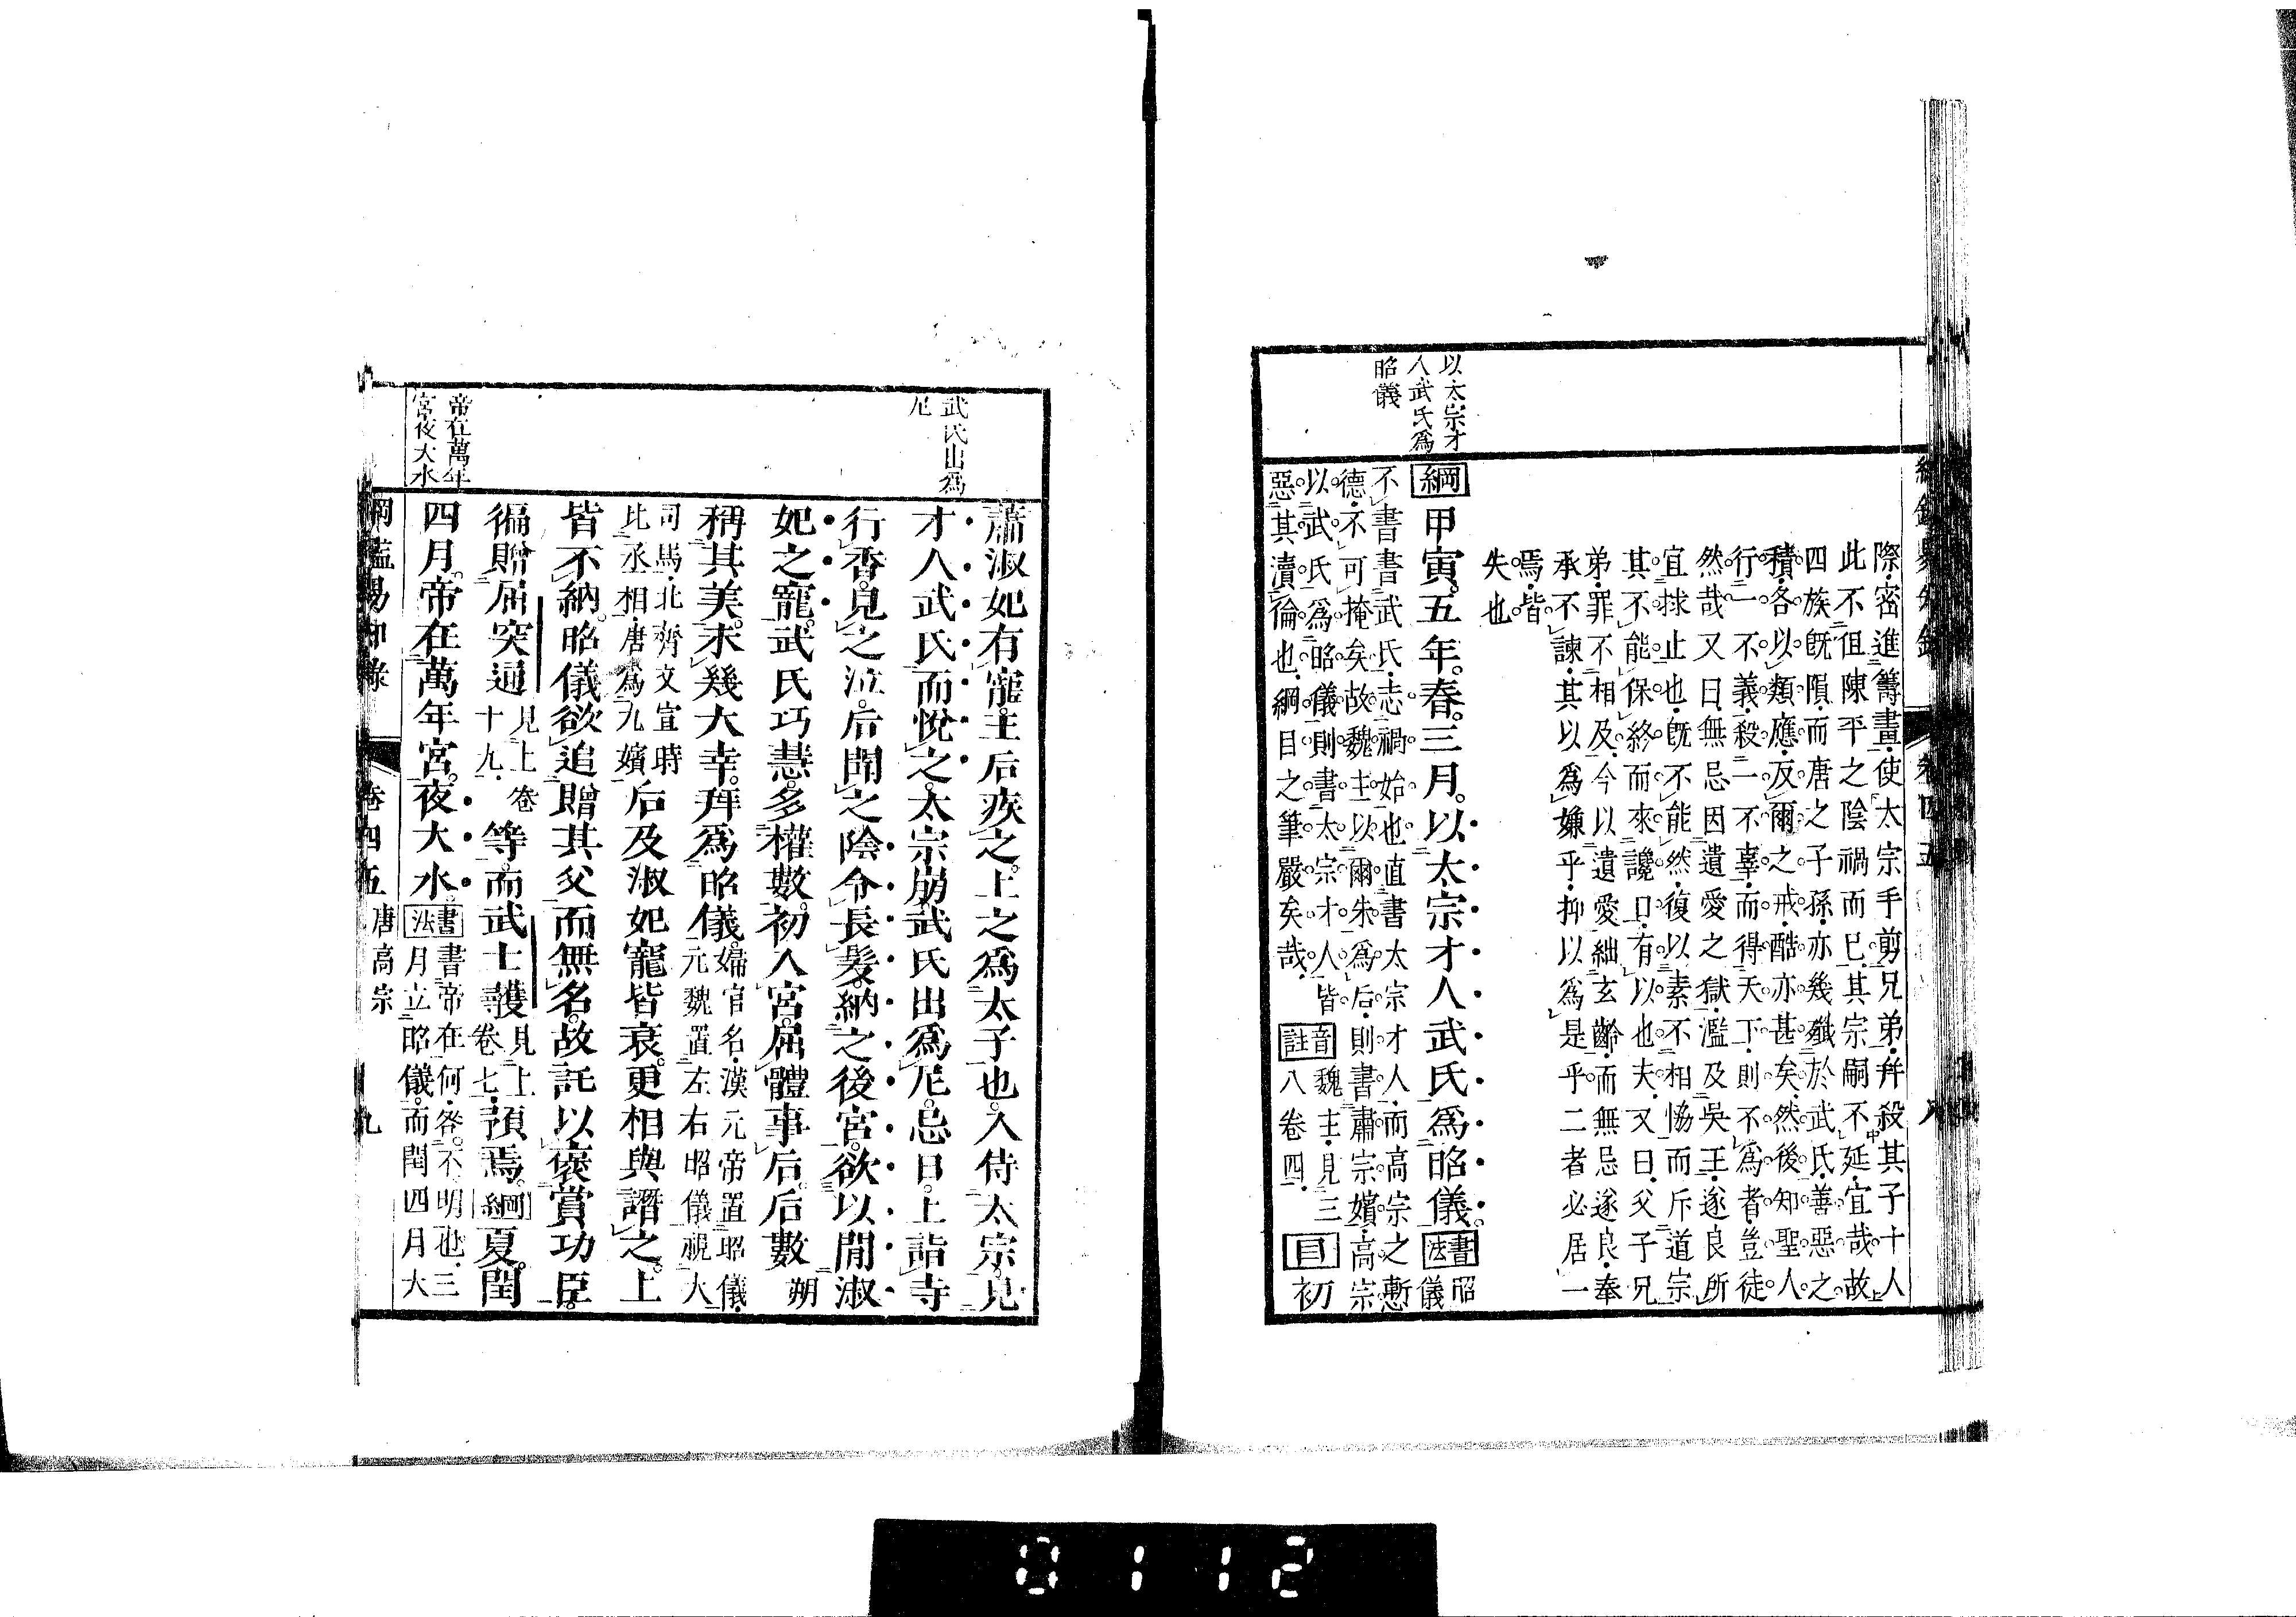 以太宗才
人武氏爲
昭儀
際密進籌畫使太宗手剪兄弟幷殺其子十人
此不徂陳平之陰禍而已其宗嗣不延宜哉故
四族旣隕而唐之子孫亦幾殲於武氏善惡之
積各以類應反爾之戒酷亦甚矣然後知聖人
行一不義殺一不辜而得天下則不爲者豈徒
然哉又曰無忌因遺愛之獄濫及吳王遂良所
宜捄止也旣不能然復以素不相恊而斥道宗
其不能保終而來讒口有以也夫又曰父子兄
弟罪不相及今以遺愛絀玄齡而無忌遂良奉
承不諫其以爲嫌乎抑以爲是乎二者必居一
焉皆
失也
綱甲寅五年春三月以太宗才人武氏爲昭儀書法昭儀
不書書武氏志禍始也直書太宗才人而高宗之慙
德不可掩矣故魏主以爾朱爲后則書肅宗嬪高宗
以武氏爲昭儀則書太宗才人皆
惡其瀆倫也綱目之筆嚴矣哉
音註魏主見三八卷四
目初
武氏出爲
尼
帝在萬年
宮夜大水
蕭淑妃有寵王后疾之上之爲太子也入侍太宗見
才人武氏而悅之太宗崩武氏出爲尼忌日上詣寺
行香見之泣后聞之陰令長髮納之後宮欲以閒淑
妃之寵武氏巧慧多權數初入宮屈體事后后數朔
稱其美未幾大幸拜爲昭儀婦官名漢元帝置昭儀元魏置左右昭儀視大
司馬北齊文宣時比丞相唐爲九嬪后及淑妃寵皆衰更相與譖之上
皆不納昭儀欲追贈其父而無名故託以褒賞功臣
徧贈屈突通見上卷十九等而武士彠見上卷七預焉綱夏閏
四月帝在萬年宮夜大水書法書帝在何咎不明也三月立昭儀而閏四月大
綱鑑易知錄
卷四五
唐高宗
九
0112